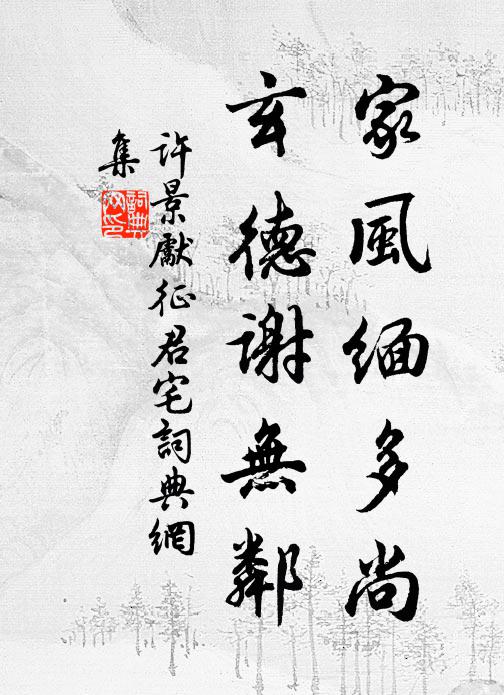 家風緬多尚
玄德謝無鄰
許景獻征君宅詞典網
集
詞典
网印